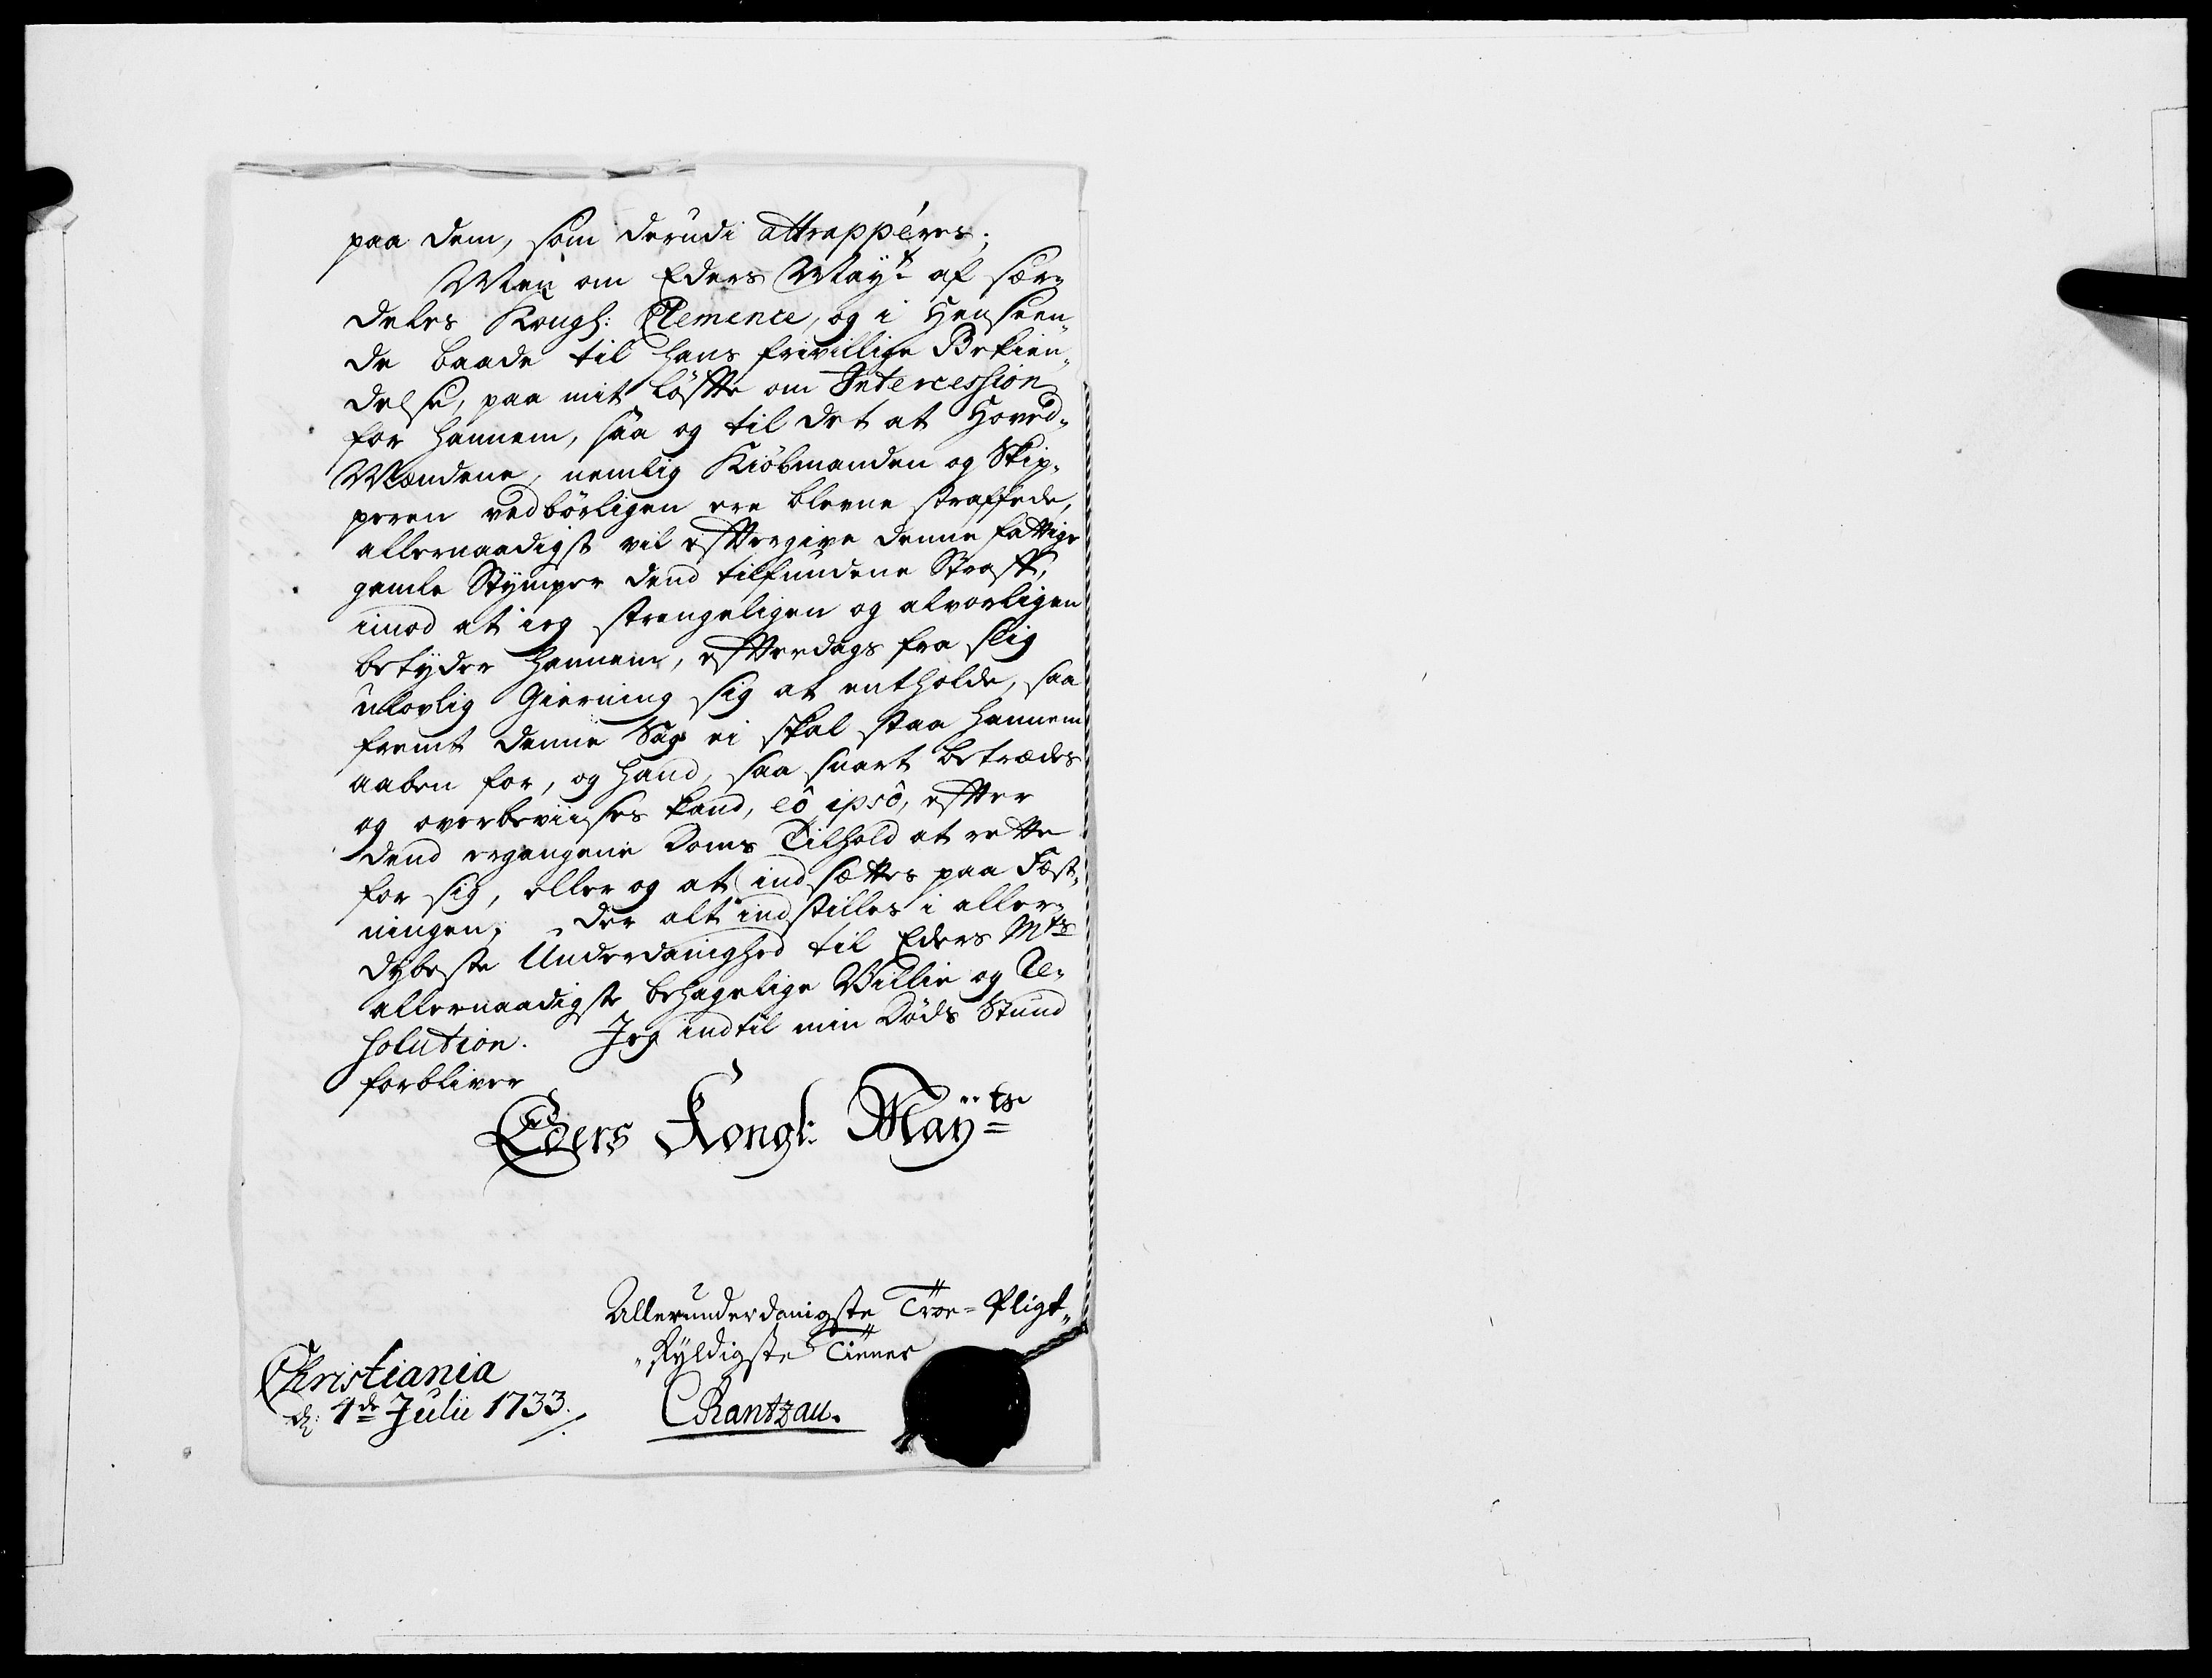 paa dem, som derudi attrapperes;
Men om Eders Mayt af sær-
deles Kongl: Clemence, og i Henseen-
de baade til hans frivillige Bekien-
delse, paa mit Løffte om Intercession
for hannem, saa og til det at Hoved-
Mændene, nemlig Kiöbmanden og Skip-
peren vedbörligen ere blevne straffede,
allernaadigst vil efftergive denne fattige
gamle Stÿmper dend tilfundene Straff,
imod at ieg strengeligen og alvorligen
betÿder hannem, effterdags fra slig
ulovlig Gierning sig at entholde, saa
fremt denne Sag ei skal staa hannem
aaben for, og hand, saa snart betrædes
og overbeviises kand, eô ipsô, effter
dend ergangene Doms Tilhold at rette
for sig, eller og at indsættes paa Fæst-
ningen; der alt indstilles i aller-
dybeste Underdanighed til Eders Mts
allernaadigste behagelige Villie og Re-
solution. Jeg indtil min Döds Stund
forbliver
Eders Kongl: Mayts
Allerunderdanigste Troe-Pligt-
skÿldigste Tiener
Christiania
d: 4de Julii 1733.
CRantzau.